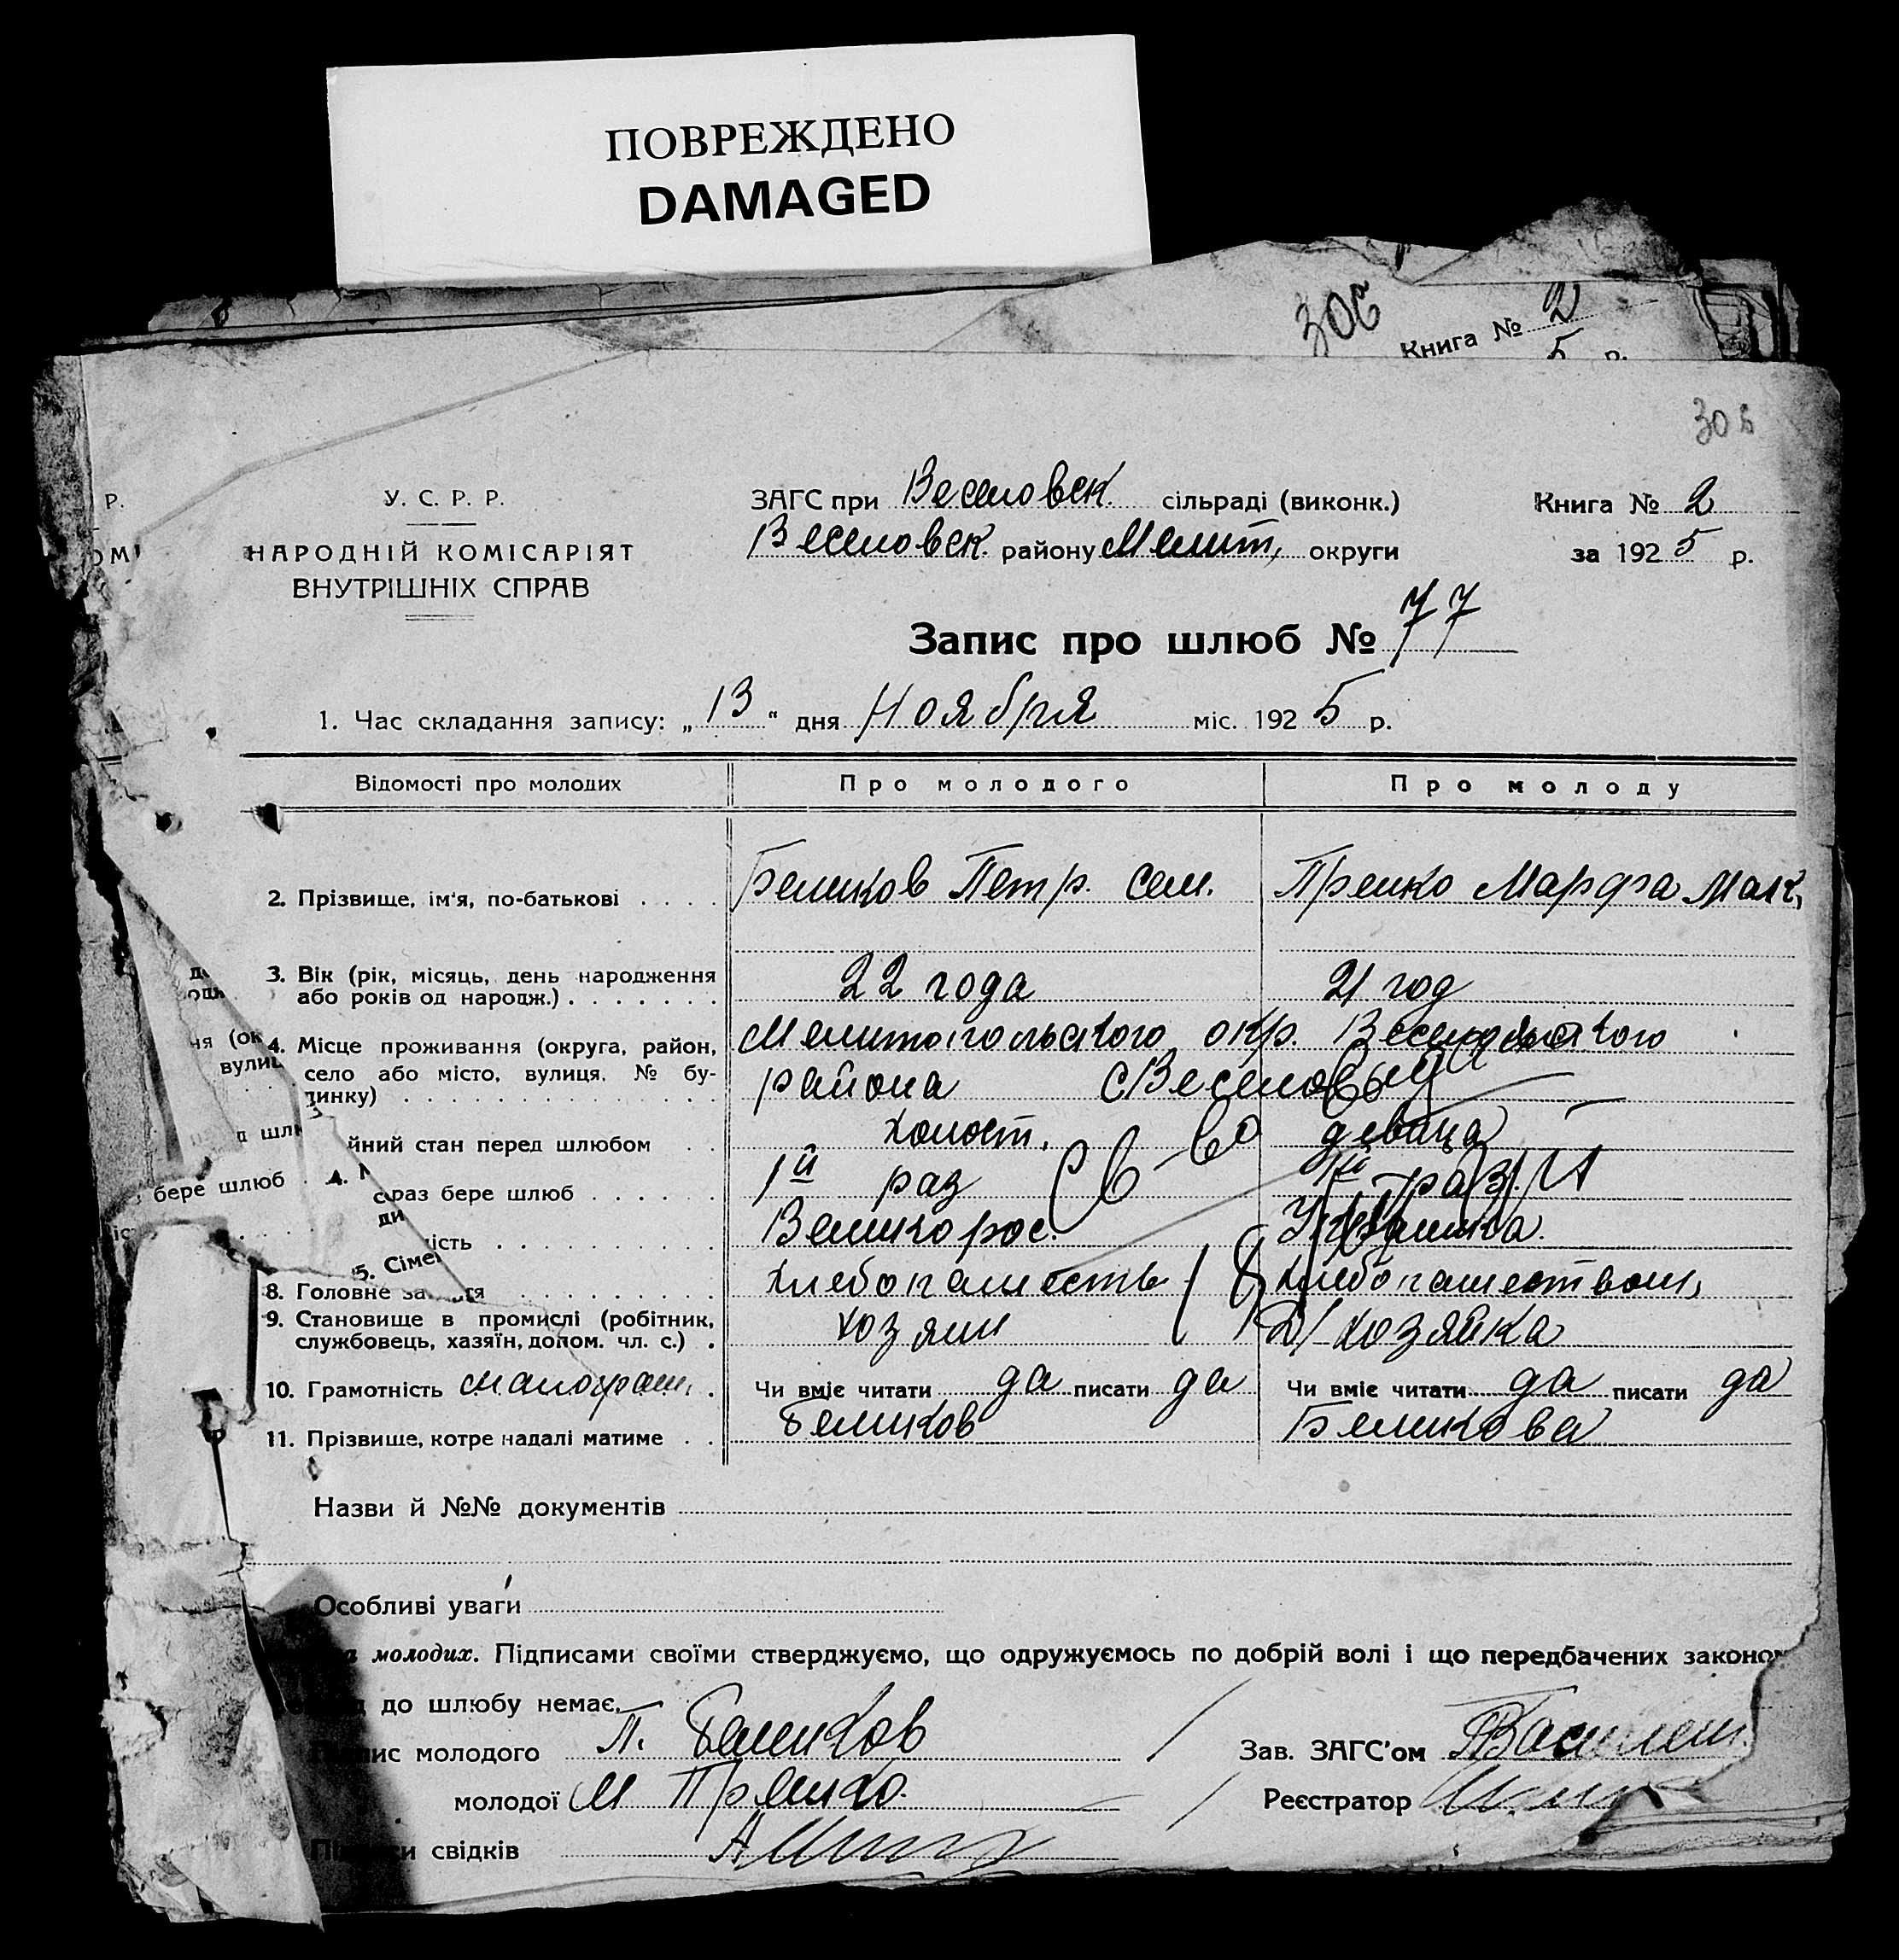 ПОВРЕЖДЕНО
DAMAGED
Книга № 2
5 р.
306
Р.
У. С. Р. Р.
НАРОДНІЙ КОМІСАРІЯТ
ВНУТРІШНІХ СПРАВ
ЗАГС при Веселовск. сільраді (виконк.)
Веселовск. району Мелит, округи
Книга № 2
за 1925 р.
Запис про шлюб № 77
1. Час складання запису: „13“ дня Ноября міс. 1925 р.
Відомості про молодих Про молодого Про молоду
2. Прізвище, ім'я, по-батькові . . . . Беликов Петр. Сем. Прейко Марфа Мак,
3. Вік (рік, місяць, день народження
або років од народж.) . . . . . . . 22 года 21 год
4. Місце проживання (округа, район, Мелитопольского окр. Веселовского
село або місто, вулиця, № бу-
динку) . . . . . . . . . . . . . . района с Веселовый
йний стан перед шлюбом . . холост. девица
раз бере шлюб . . . . . . 1й раз 1й раз
бере шлюб
ість . . . . . . . . . . Великорос. Украинка.
5. Сіме
8. Головне за тя . . . . . . . . . хлебопашеств хлебопашеством,
9. Становище в промислі (робітник,
службовець, хазяїн, допом. чл. с.) . хозяин хозяйка
10. Грамотність малограм. . Чи вміє читати да писати да Чи вміє читати да писати да
11. Прізвище, котре надалі матиме . . Беликов Беликова
Назви й №№ документів
Особливі уваги
молодих. Підписами своїми стверджуємо, що одружуємось по добрій волі і що передбачених законом
до шлюбу немає.
пис молодого П. Беликов Зав. ЗАГС'ом
молодої М Прейко. Реєстратор
свідків